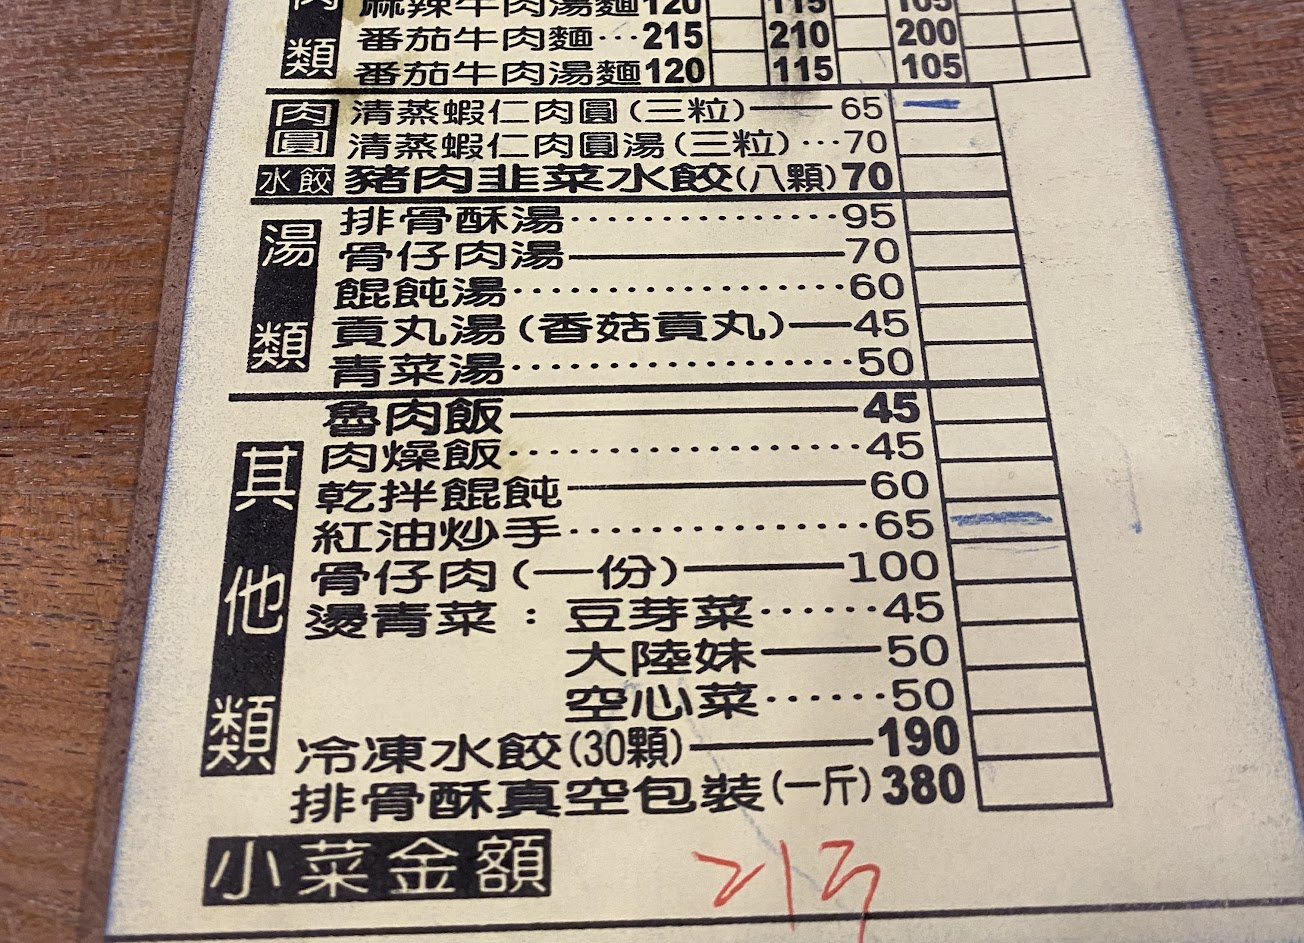 肉類
麻辣牛肉湯麵120 115 105
番茄牛肉麵…215 210 200
番茄牛肉湯麵120 115 105
肉圓
清蒸蝦仁肉圓(三粒)——65
清蒸蝦仁肉圓湯(三粒)…70
水餃
豬肉韭菜水餃(八顆)70
湯類
排骨酥湯……………95
骨仔肉湯————70
餛飩湯………………60
貢丸湯(香菇貢丸)—45
青菜湯………………50
其他類
魯肉飯——————45
肉燥飯………………45
乾拌餛飩—————60
紅油炒手……………65
骨仔肉(一份)———100
燙青菜：豆芽菜……45
大陸妹——50
空心菜……50
冷凍水餃(30顆)———190
排骨酥真空包裝(一斤)380
小菜金額